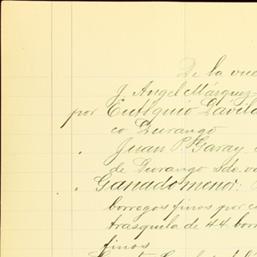 De la vue
J. Angel Márquez
por Eutiquio Davila
co Durango
Juan P. Garay
de Durango Sdo va
Ganado menor:
borregos finos por c
trasquila de 44 borr
finos